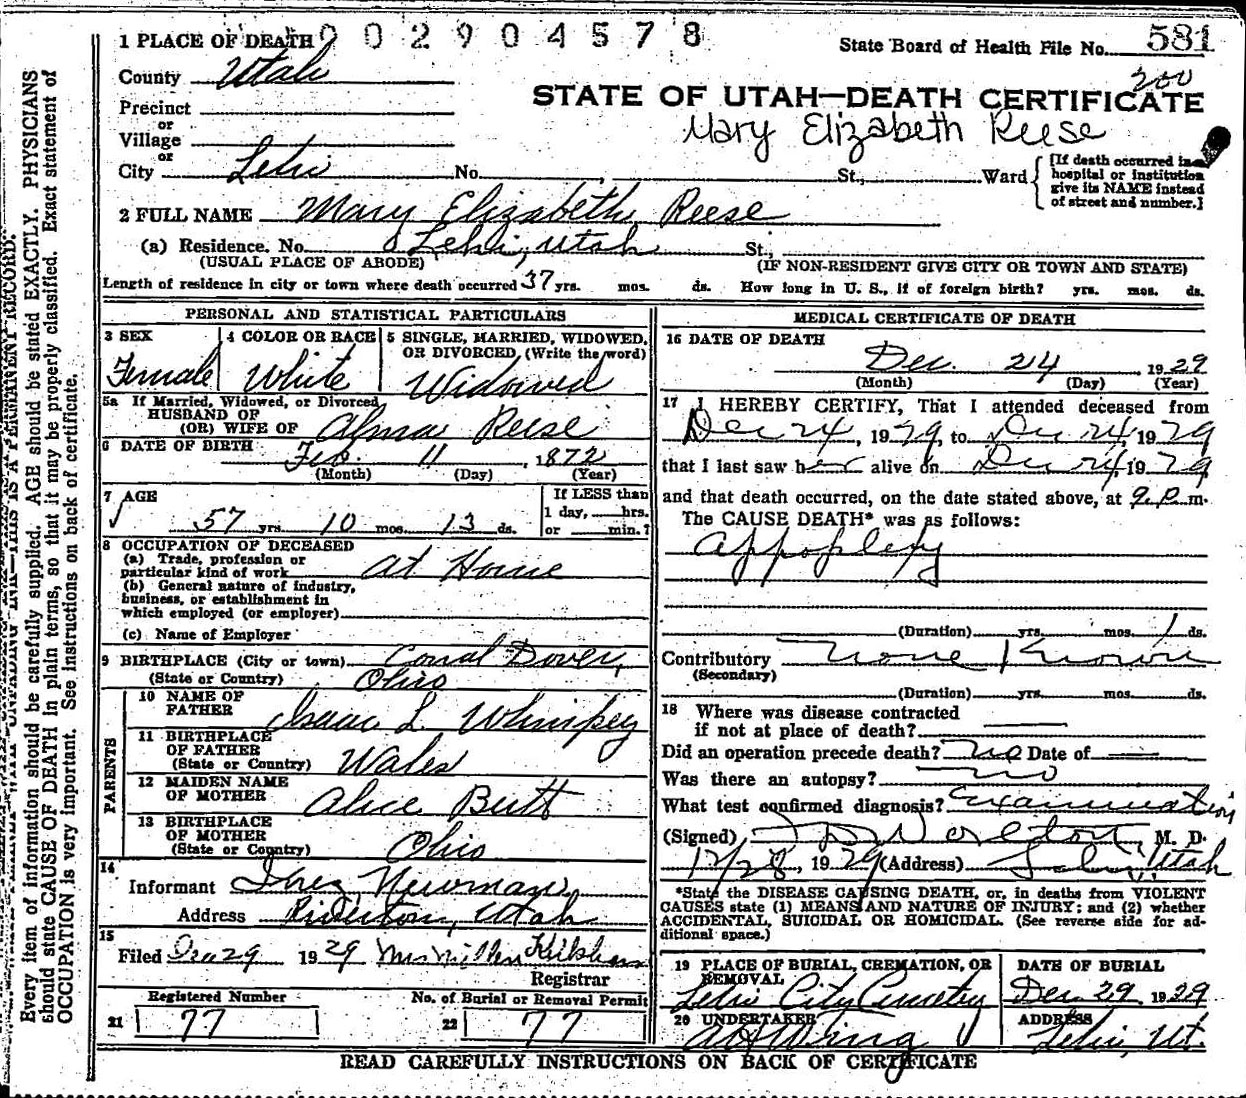 002904578
1 PLACE OF DEATH
State Board of Health File No. 581
County Utah
200
STATE OF UTAH—DEATH CERTIFICATE
Precinct
Mary Elizabeth Reese
or
Village
or
City Lehi No. , St., Ward
[If death occurred in a hospital or institution give its NAME instead of street and number.]
2 FULL NAME Mary Elizabeth Reese
(a) Residence. No. Lehi, Utah St.,
(USUAL PLACE OF ABODE) (IF NON-RESIDENT GIVE CITY OR TOWN AND STATE)
Length of residence in city or town where death occurred 37 yrs. mos. ds. How long in U. S., if of foreign birth? yrs. mos. ds.
PERSONAL AND STATISTICAL PARTICULARS
3 SEX
Female
4 COLOR OR RACE
White
5 SINGLE, MARRIED, WIDOWED,
OR DIVORCED (Write the word)
Widowed
5a If Married, Widowed, or Divorced
HUSBAND OF
(OR) WIFE OF Alma Reese
6 DATE OF BIRTH
Feb. 11, 1872
(Month) (Day) (Year)
7 AGE
57 yrs. 10 mos. 13 ds.
If LESS than
1 day, hrs.
or min.?
8 OCCUPATION OF DECEASED
(a) Trade, profession or
particular kind of work At Home
(b) General nature of industry,
business, or establishment in
which employed (or employer)
(c) Name of Employer
9 BIRTHPLACE (City or town) Dover,
(State or Country) Ohio
PARENTS
10 NAME OF
FATHER Isaac L. Whimpey
11 BIRTHPLACE
OF FATHER
(State or Country) Wales
12 MAIDEN NAME
OF MOTHER Alice Butt
13 BIRTHPLACE
OF MOTHER
(State or Country) Ohio
14
Informant Inez Newman
Address Riverton, Utah
15
Filed Dec 29 1929
Registrar
Registered Number
21 77
No. of Burial or Removal Permit
22 77
MEDICAL CERTIFICATE OF DEATH
16 DATE OF DEATH
Dec. 24, 1929
(Month) (Day) (Year)
17 I HEREBY CERTIFY, That I attended deceased from
Dec 24, 1929, to Dec 24, 1929
that I last saw her alive on Dec 24, 1929
and that death occurred, on the date stated above, at 9 P. m.
The CAUSE DEATH* was as follows:
Appoplexy
(Duration) yrs. mos. 1 ds.
Contributory None Known
(Secondary)
(Duration) yrs. mos. ds.
18 Where was disease contracted
if not at place of death?
Did an operation precede death? No Date of
Was there an autopsy? No
What test confirmed diagnosis? Examination
(Signed) M. D.
12/28, 1929 (Address) Lehi, Utah
*State the DISEASE CAUSING DEATH, or, in deaths from VIOLENT
CAUSES state (1) MEANS AND NATURE OF INJURY; and (2) whether
ACCIDENTAL, SUICIDAL OR HOMICIDAL. (See reverse side for ad-
ditional space.)
19 PLACE OF BURIAL, CREMATION, OR
REMOVAL
Lehi City Cemetry
DATE OF BURIAL
Dec. 29 1929
20 UNDERTAKER
A H Wing
ADDRESS
Lehi, Ut.
READ CAREFULLY INSTRUCTIONS ON BACK OF CERTIFICATE
Every item of information should be carefully supplied. AGE should be stated EXACTLY. PHYSICIANS
should state CAUSE OF DEATH in plain terms, so that it may be properly classified. Exact statement of
OCCUPATION is very important. See instructions on back of certificate.
THIS IS A PERMANENT RECORD.